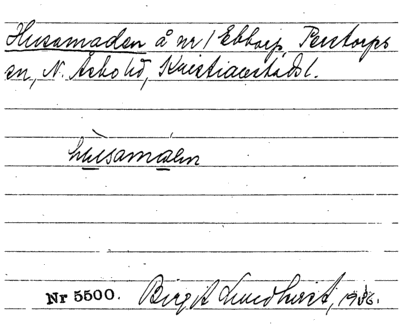 Husamaden å nr 1 Ebbarp, Perstorps
sn, N. Åsbo hd, Kristianstads l.
husamaden
Nr 5500. Birgit Lundqvist, 1936.